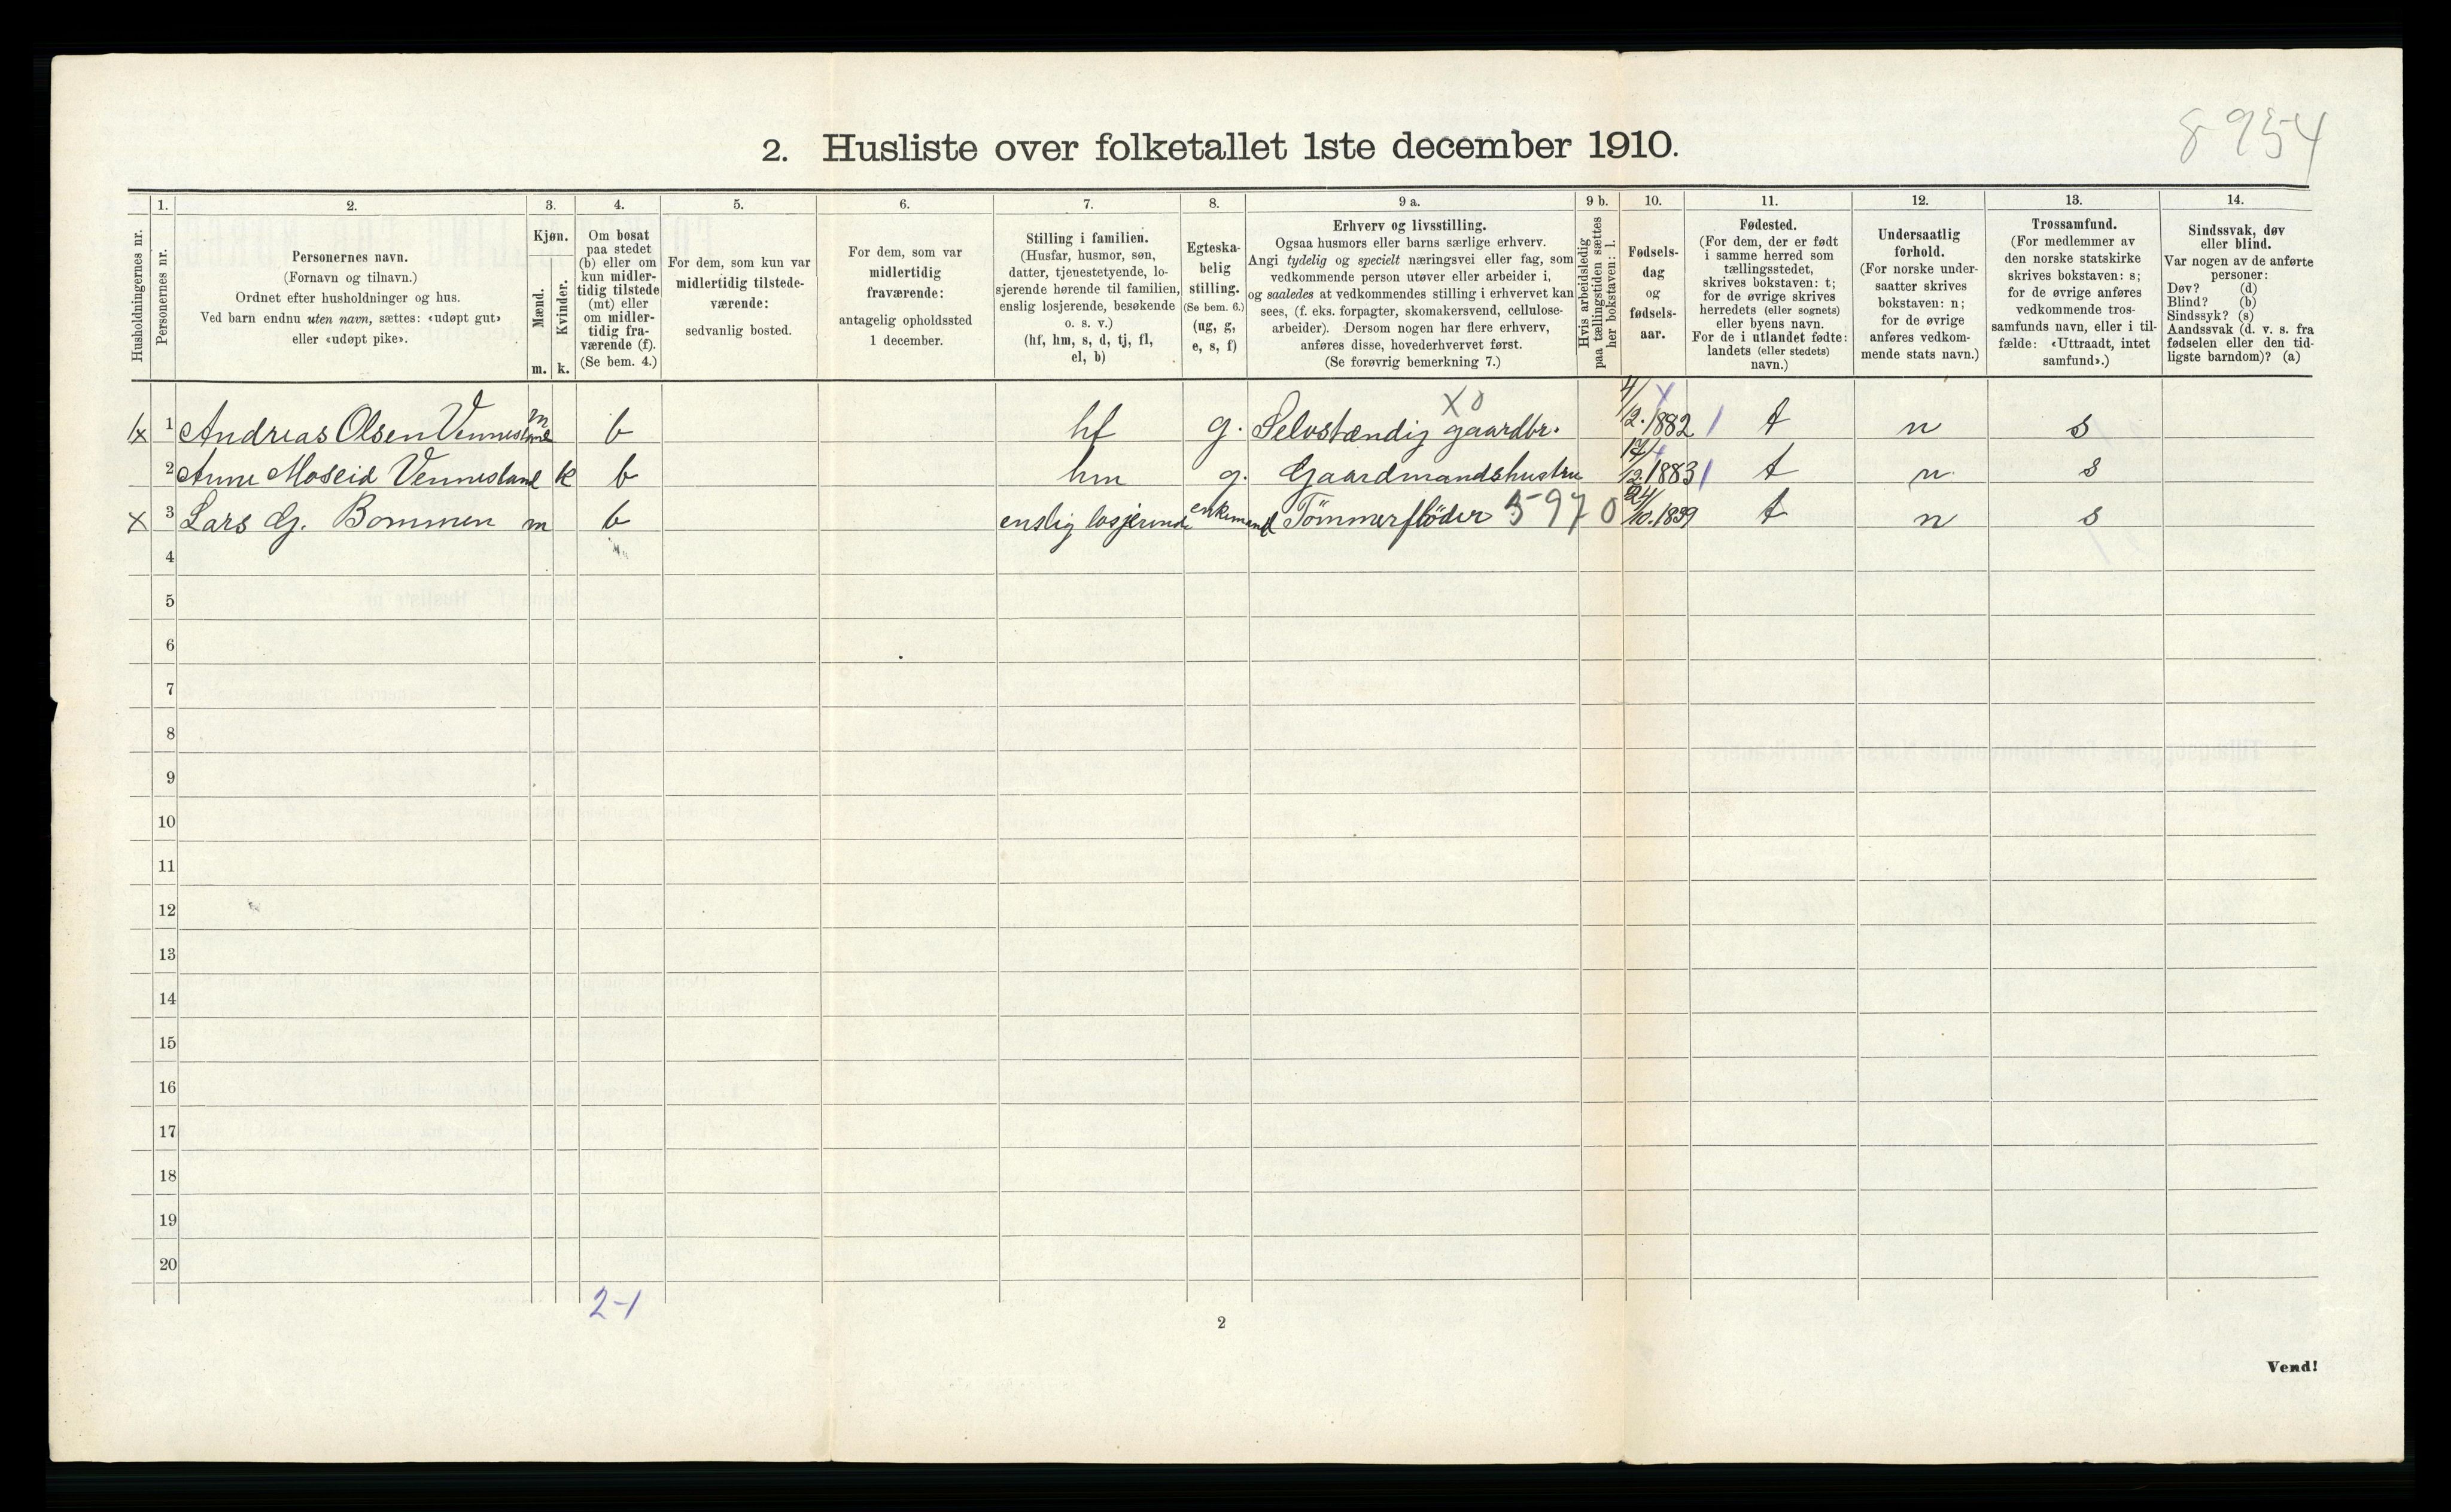 8954
2. Husliste over folketallet 1ste december 1910.
Husholdningernes nr.
1.
Personernes nr.
2.
Personernes navn.
(Fornavn og tilnavn.)
Ordnet efter husholdninger og hus.
Ved barn endnu uten navn, sættes: «udøpt gut»
eller «udøpt pike».
3.
Kjøn.
Mænd.
Kvinder.
m. k.
4.
Om bosat
paa stedet
(b) eller om
kun midler-
tidig tilstede
(mt) eller
om midler-
tidig fra-
værende (f).
(Se bem. 4.)
5.
For dem, som kun var
midlertidig tilstede-
værende:
sedvanlig bosted.
6.
For dem, som var
midlertidig
fraværende:
antagelig opholdssted
1 december.
7.
Stilling i familien.
(Husfar, husmor, søn,
datter, tjenestetyende, lo-
sjerende hørende til familien,
enslig losjerende, besøkende
o. s. v.)
(hf, hm, s, d, tj, fl,
el, b)
8.
Egteska-
belig
stilling.
(Se bem. 6.)
(ug, g,
e, s, f)
9 a.
Erhverv og livsstilling.
Ogsaa husmors eller barns særlige erhverv.
Angi tydelig og specielt næringsvei eller fag, som
vedkommende person utøver eller arbeider i,
og saaledes at vedkommendes stilling i erhvervet kan
sees, (f. eks. forpagter, skomakersvend, cellulose-
arbeider). Dersom nogen har flere erhverv,
anføres disse, hovederhvervet først.
(Se forøvrig bemerkning 7.)
9 b.
Hvis arbeidsledig
paa tællingstiden sættes
her bokstaven: l.
10.
Fødsels-
dag
og
fødsels-
aar.
11.
Fødested.
(For dem, der er født
i samme herred som
tællingsstedet,
skrives bokstaven: t;
for de øvrige skrives
herredets (eller sognets)
eller byens navn.
For de i utlandet fødte:
landets (eller stedets)
navn.)
12.
Undersaatlig
forhold.
(For norske under-
saatter skrives
bokstaven: n;
for de øvrige
anføres vedkom-
mende stats navn.)
13.
Trossamfund.
(For medlemmer av
den norske statskirke
skrives bokstaven: s;
for de øvrige anføres
vedkommende tros-
samfunds navn, eller i til-
fælde: «Uttraadt, intet
samfund».)
14.
Sindssvak, døv
eller blind.
Var nogen av de anførte
personer:
Døv? (d)
Blind? (b)
Sindssyk? (s)
Aandssvak (d. v. s. fra
fødselen eller den tid-
ligste barndom)? (a)
x 1 Andreas Olsen Vennesland m b hf g. Selvstændig gaardbr. x 0 4/12.1882 t n s
2 Anne Moseid Vennesland k b hm g. Gaardmandshustru 17/12.1883 t n s
x 3 Lars G. Bommen m b enslig losjerende enkemand Tömmerflöder 5970 24/10.1839 t n s
4
5
6
7
8
9
10
11
12
13
14
15
16
17
18
19
20
2-1
2
Vend!